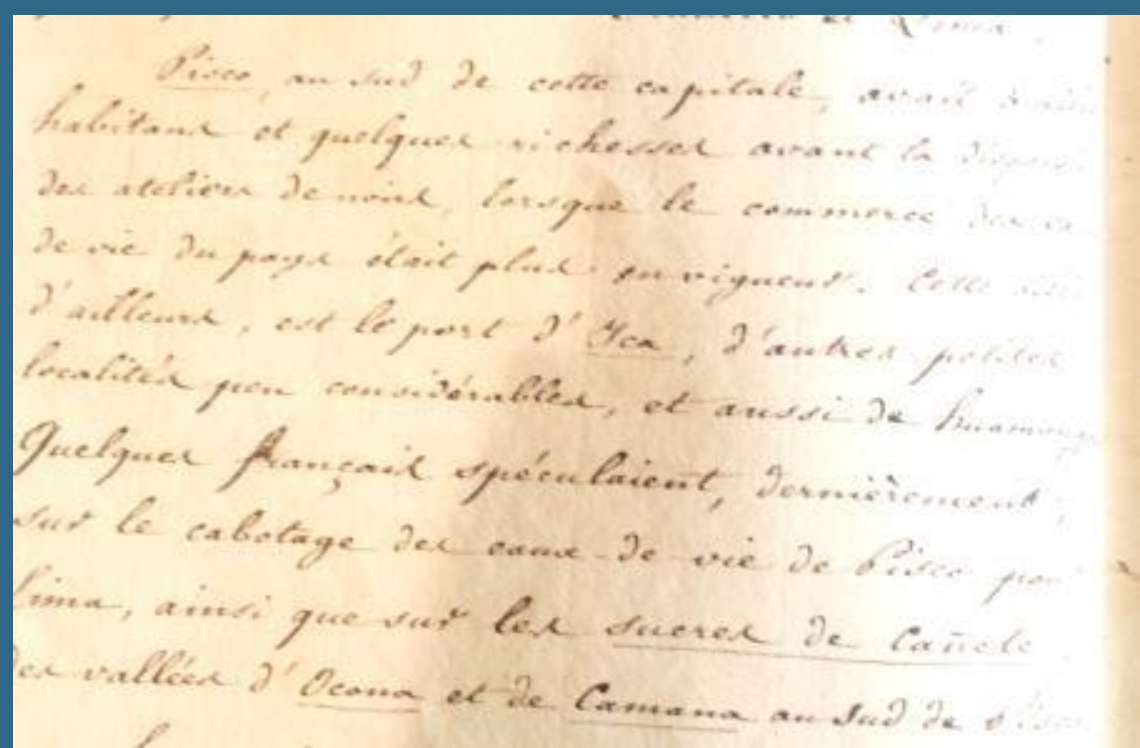 Lima.
Pisco, au sud de cette capitale, avait
habitans et quelques richesses avant la
des ateliers de noirs, lorsque le commerce des
de vie du pays était plus en vigueur. Cette
d'ailleurs, est le port d'Ica, d'autres petites
localités peu considérables, et aussi de
Quelques français spéculaient, dernièrement,
sur le cabotage des eaux-de-vie de Pisco pour
Lima, ainsi que sur les sucres de Cañete
des vallées d'Ocona et de Camana au sud de Pisco